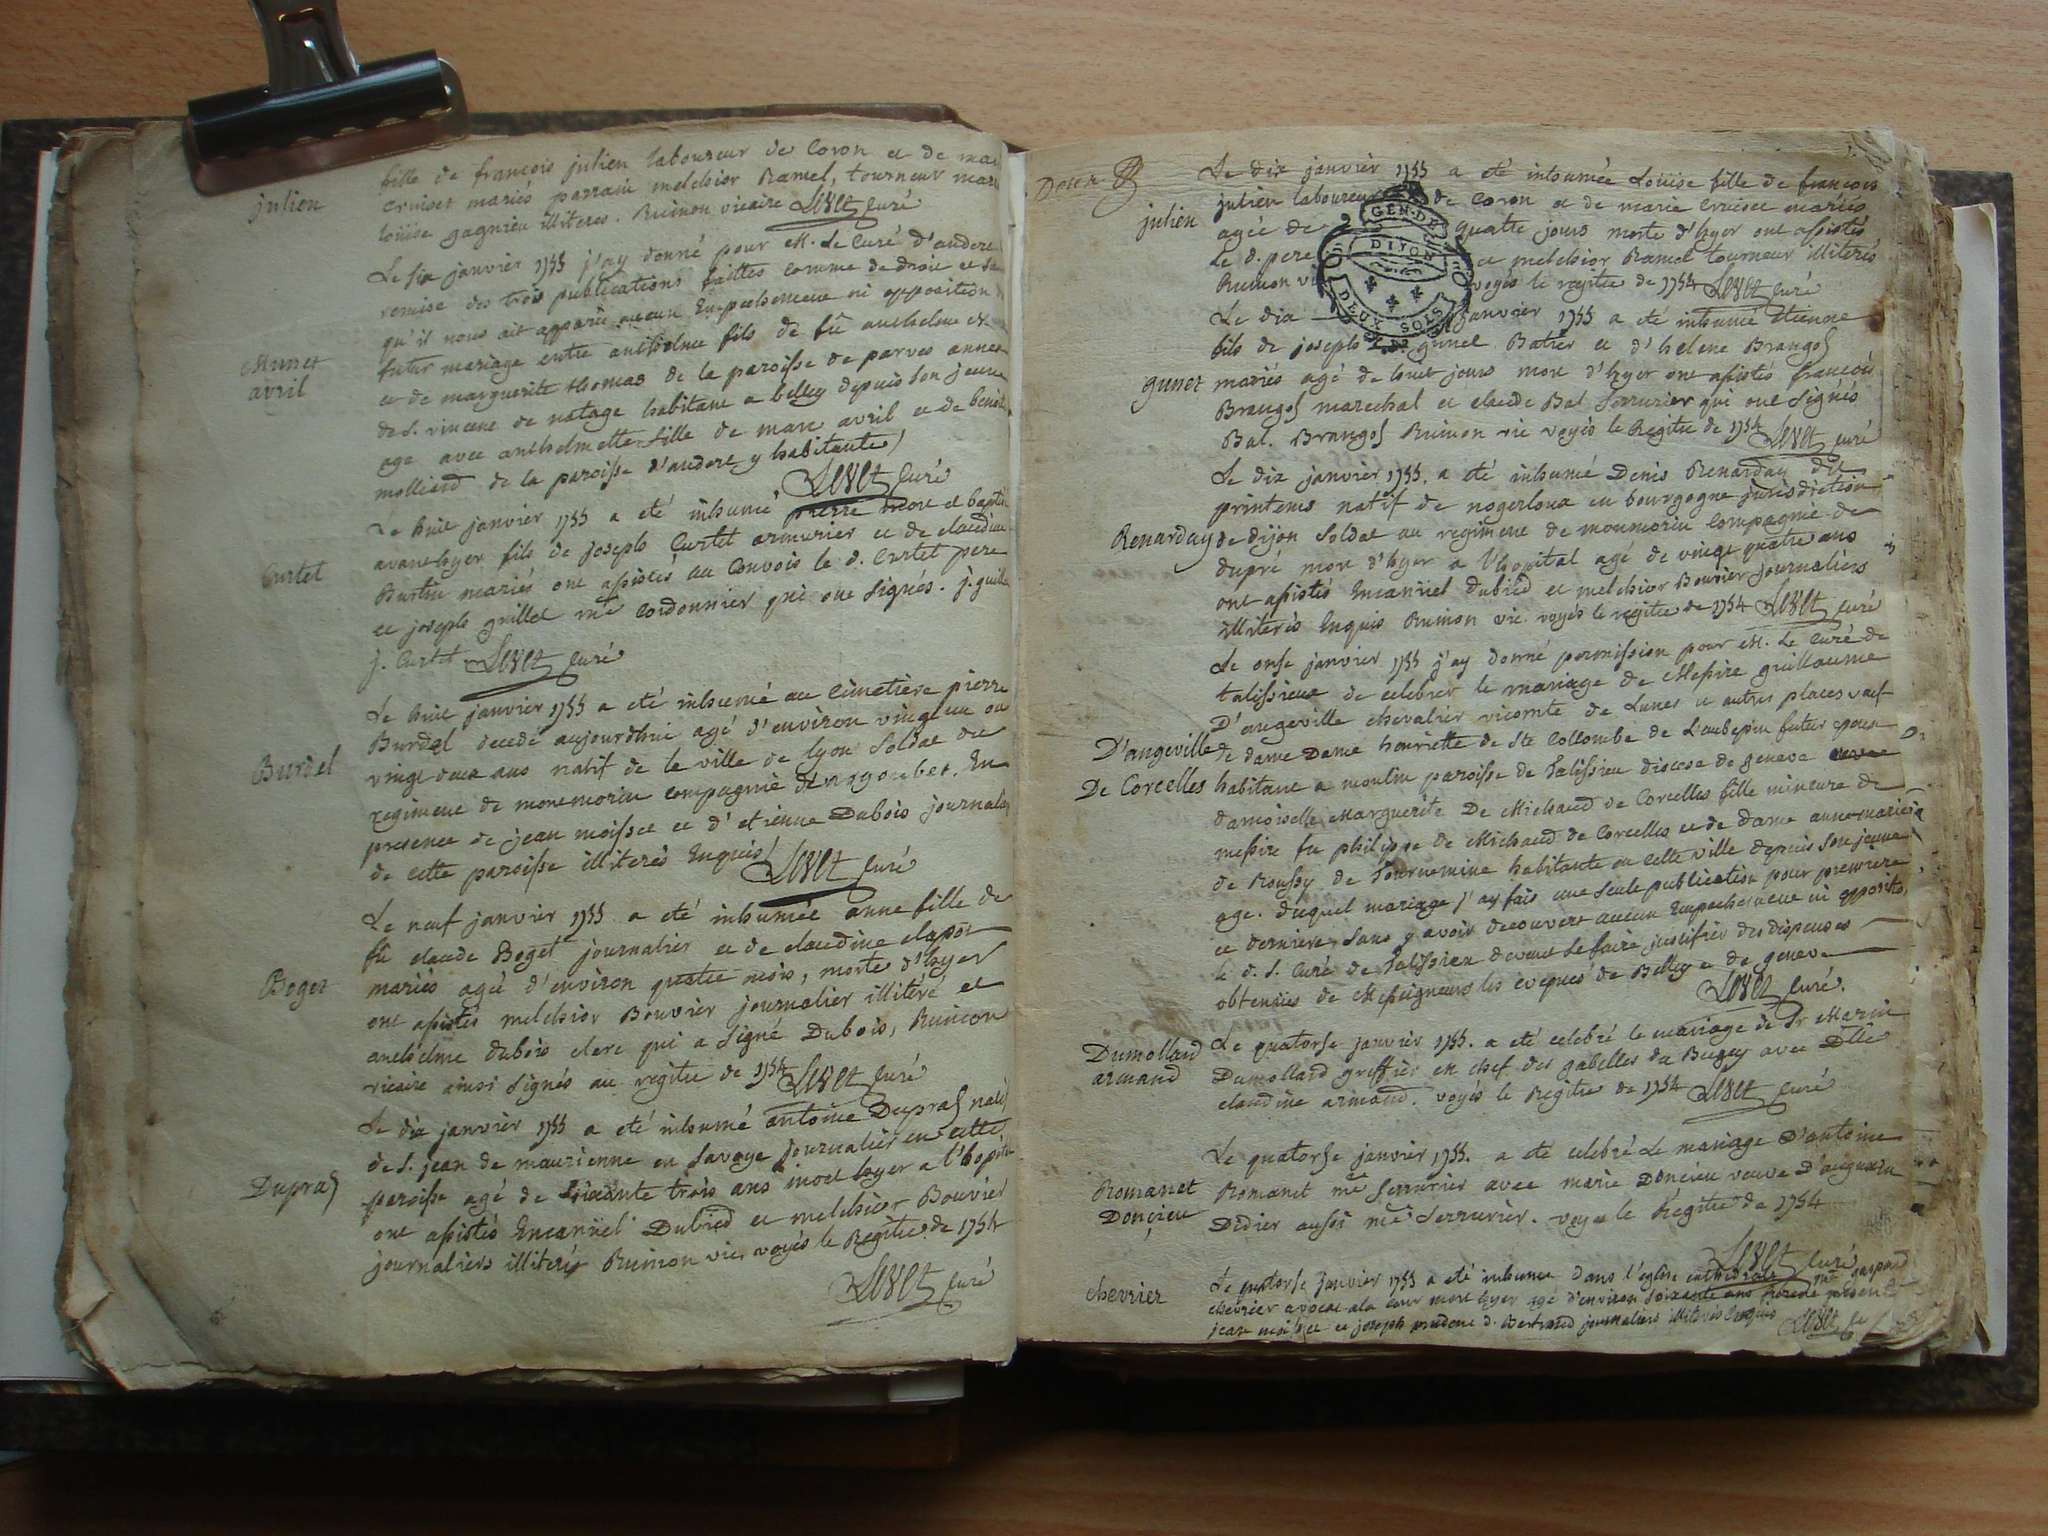 fille de françois julien laboureur de Coron et de
julien
Cruiset mariés parrain melchior Ramel, tourneur
loüise gagnieu illiteres. Ruinon vicaire Levet Curé
Le six janvier 1755 j'ay donné pour M. Le Curé d'andert
remise des trois publications faittes comme de droit et
qu'il nous ait apparu aucun Empechement ni opposition
Munet
avril
futur mariage entre anthelme fils de fû anthelme
et de marguerite thomas de la paroisse de parves
de S. vincent de natage habitant a belley depuis son jeune
age avec anthelmette fille de marc avril et de
molliard de la paroisse d'andert y habitante
Levet Curé
Le huit janvier 1755 a eté inhumé pierre mort et
avanthyer fils de joseph Curtet armurier et de claudine
Curtet
Burtin mariés ont assistés au Convois le d. Curtet pere
et joseph grillet me Cordonnier qui ont signés. j.
j. Curtet Levet Curé
Le huit janvier 1755 a eté inhumé au Cimetière pierre
Burdel
Burdel decedé aujourdhui agé d'environ vingt un ou
vingt deux ans natif de la ville de lyon Soldat du
regiment de montmorin compagnie En
presence de jean moisset et d'etienne Dubois
de cette paroisse illiterés Enquis Levet Curé
Le neuf janvier 1755 a eté inhumée anne fille de
Boget
fû claude Boget journalier et de claudine
mariés agée d'environ quatre mois, morte d'hyer
ont assistés melchior Bouvier journalier illiteré et
anthelme dubois clerc qui a signé Dubois, Ruinon
vicaire ainsi signés au regitre de 1754 Levet Curé
Le dix janvier 1755 a eté inhumé antoine Dupras
de S. jean de maurienne en Savoye journalier en cette
Dupras
paroisse agé de soixante trois ans mort hyer a
ont assistés Emanüel Dubied et melchior Bouvier
journaliers illiterés Ruinon vic. voyés le Regitre de 1754
Levet Curé
Le dix janvier 1755 a eté inhumée Loüise fille de françois
julien
julien laboureur de Coron et de marie Cruiset mariés
agée de quatre jours morte d'hyer ont assistés
Le d. pere et melchior Ramel tourneur illiterés
Ruinon voyés le regitre de 1754 Levet Curé
GEN. DE
DIJON
DEUX SOLS
Le dix janvier 1755 a eté inhumé etienne
fils de joseph gunet Batier et d'helene Brangos
gunet
mariés agé de huit jours mort d'hyer ont assistés françois
Brangos marechal et claude Bal Serrurier qui ont Signés
Bal. Brangos Ruinon vic voyés le Regitre de 1754 Levet Curé
Le dix janvier 1755. a eté inhumé Denis Renarday dit
printems natif de en bourgogne jurisdiction
Renarday
de dijon Soldat au regiment de monmorin Compagnie de
dupré mort d'hyer a l'hopital agé de vingt quatre ans
ont assistés Emanüel dubied et melchior Bouvier journaliers
illiterés Enquis Ruinon vic. voyés le regitre de 1754 Levet Curé
Le onse janvier 1755 j'ay donné permission pour M. Le Curé de
talissieux de celebrer le mariage de Messire guillaume
D'angeville chevalier vicomte de Lunes et autres places veuf
D'angeville
De Corcelles
de dame Dame henriette de Ste Collombe de L'aubepin futur epoux
habitant a moulin paroisse de Talissieu diocese de geneve
damoiselle Marguerite De Michaud de Corcelles fille mineure de
messire fu philippe de Michaud de Corcelles et de dame anne marie
de Roussy de Tournemine habitante en cette ville depuis son jeune
age. duquel mariage j'ay fais une seule publication pour premiere
et derniere, sans y avoir decouvert aucun Empechement ni
le d. S. Curé de Talissieu devant se faire justifier des dispenses
obtenües de Messeigneurs les eveques de Belley et de geneve
Levet Curé.
Dumollard
armand
Le quatorse janvier 1755. a eté celebré le mariage de Sr Marin
Dumollard greffier en chef des gabelles du Bugey avec Dlle
claudine armand. voyés le Regitre de 1754 Levet Curé
Le quatorse janvier 1755. a eté celebré Le mariage d'antoine
Romanet
Donçieu
Romanet me Serrurier avec marie Doncieu veuve d'augustin
Didier aussi me Serrurier. voyes le Regitre de 1754
Levet Curé
chevrier
Le quatorse janvier 1755 a eté inhumé dans l'eglise cathedrale me gaspard
chevrier avocat a la cour mort hyer agé d'environ soixante ans
jean moisset et joseph prudent d. Bertrand journaliers illiterés Enquis Levet